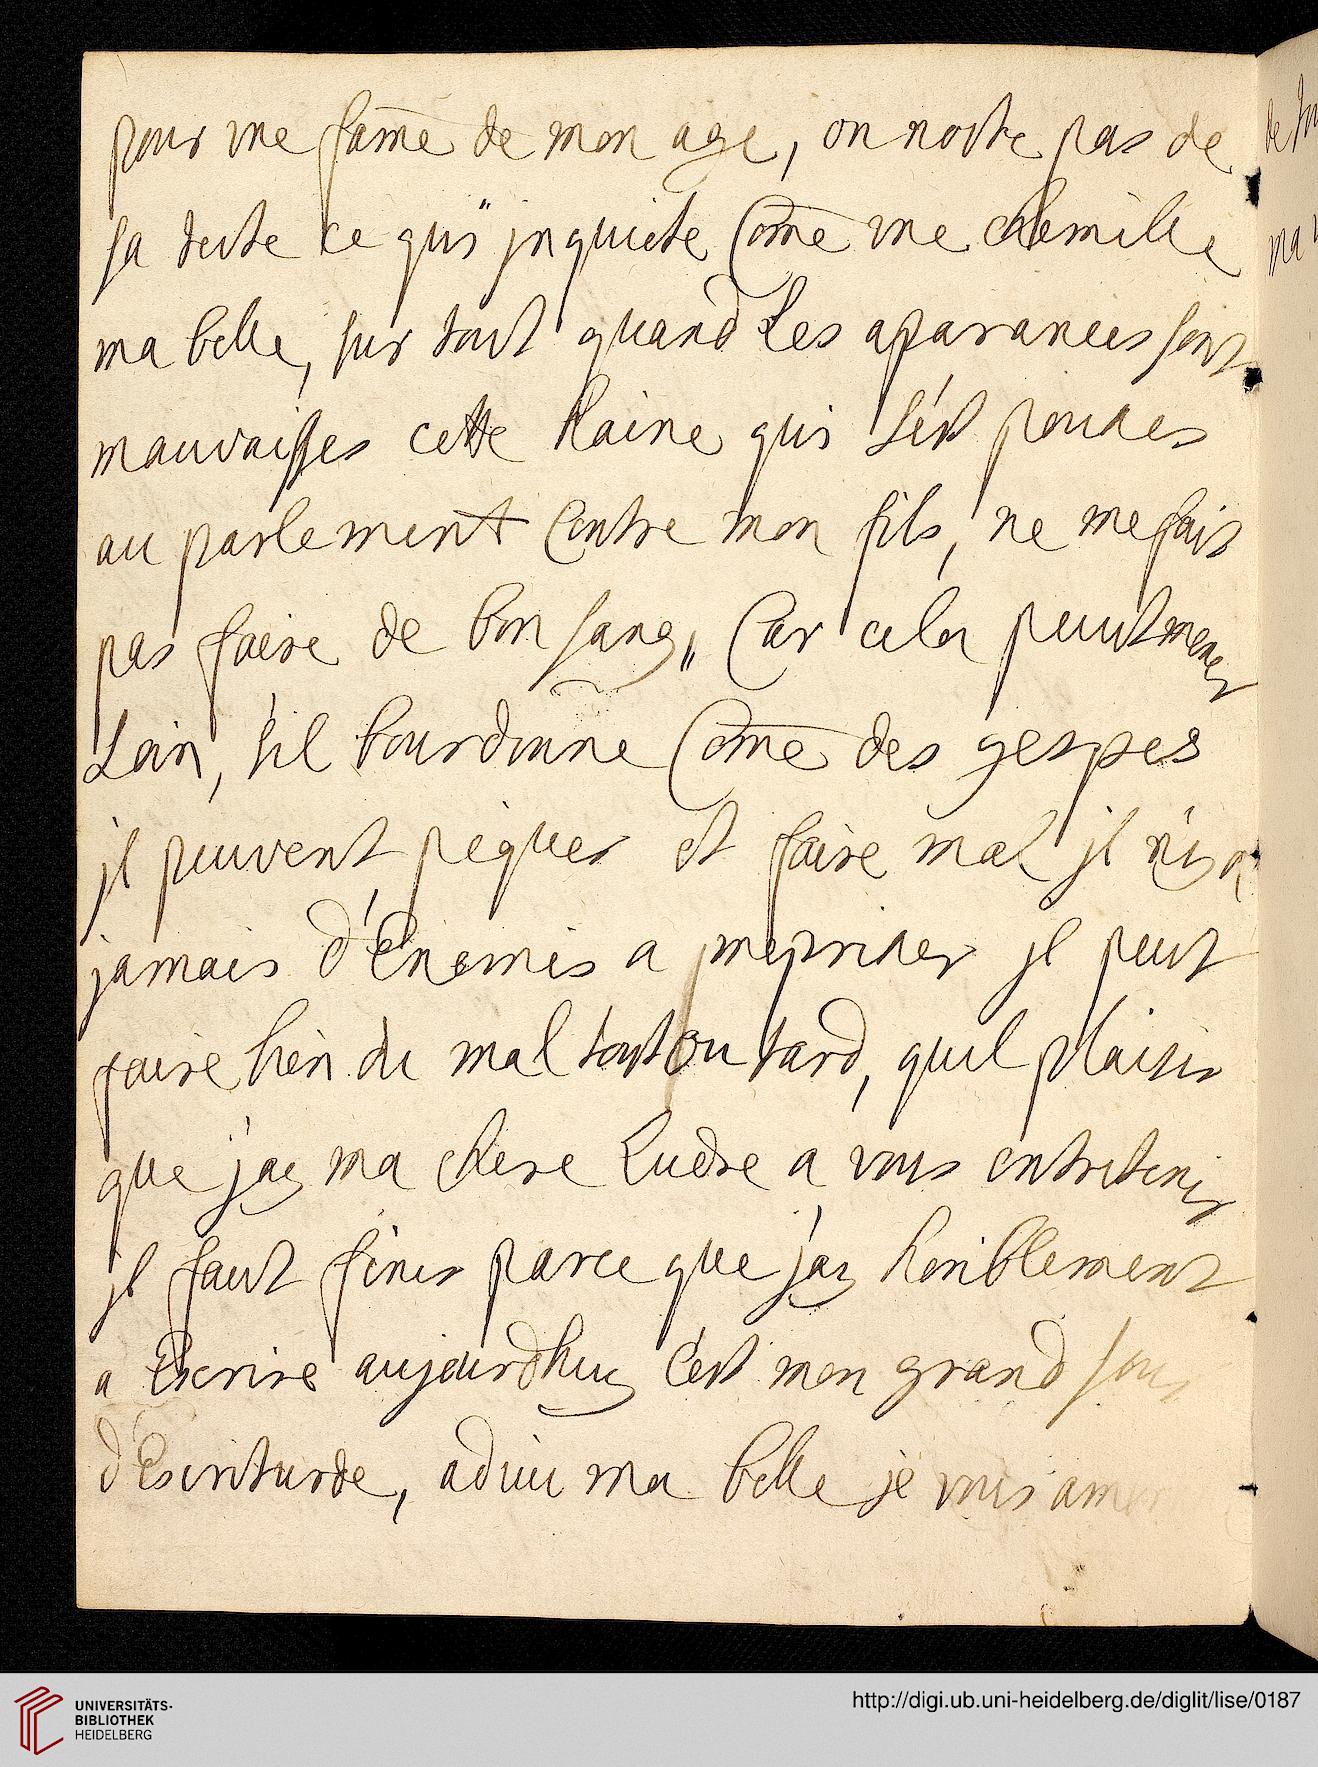 pour vne fam̄e de mon age, on n'oste pas de
sa teste ce qui jnquiete Com̄e vne chemille
ma belle, sur tout quand Les aparances sont
mauvaisses cette haine qui s'est
au parlement Contre mon fils, ne me fait
pas faire de bon sang, Car cela peut mener
Loin, s'il bourdonne Com̄e des gespes
jl peuvent piquer et faire mal jl n'y a
jamais d'Enemis a mepriser jl peut
faire bien du mal tost ou tard, quel plaisir
que j'ay ma chere Ludre a vous entretenir
jl faut finir parce que j'ay horiblement
a Escrire aujourdhuy C'est mon grand jour
d'Escriturde, adieu ma belle je vous
de
ma
UNIVERSITÄTS-
BIBLIOTHEK
HEIDELBERG
http://digi.ub.uni-heidelberg.de/diglit/lise/0187